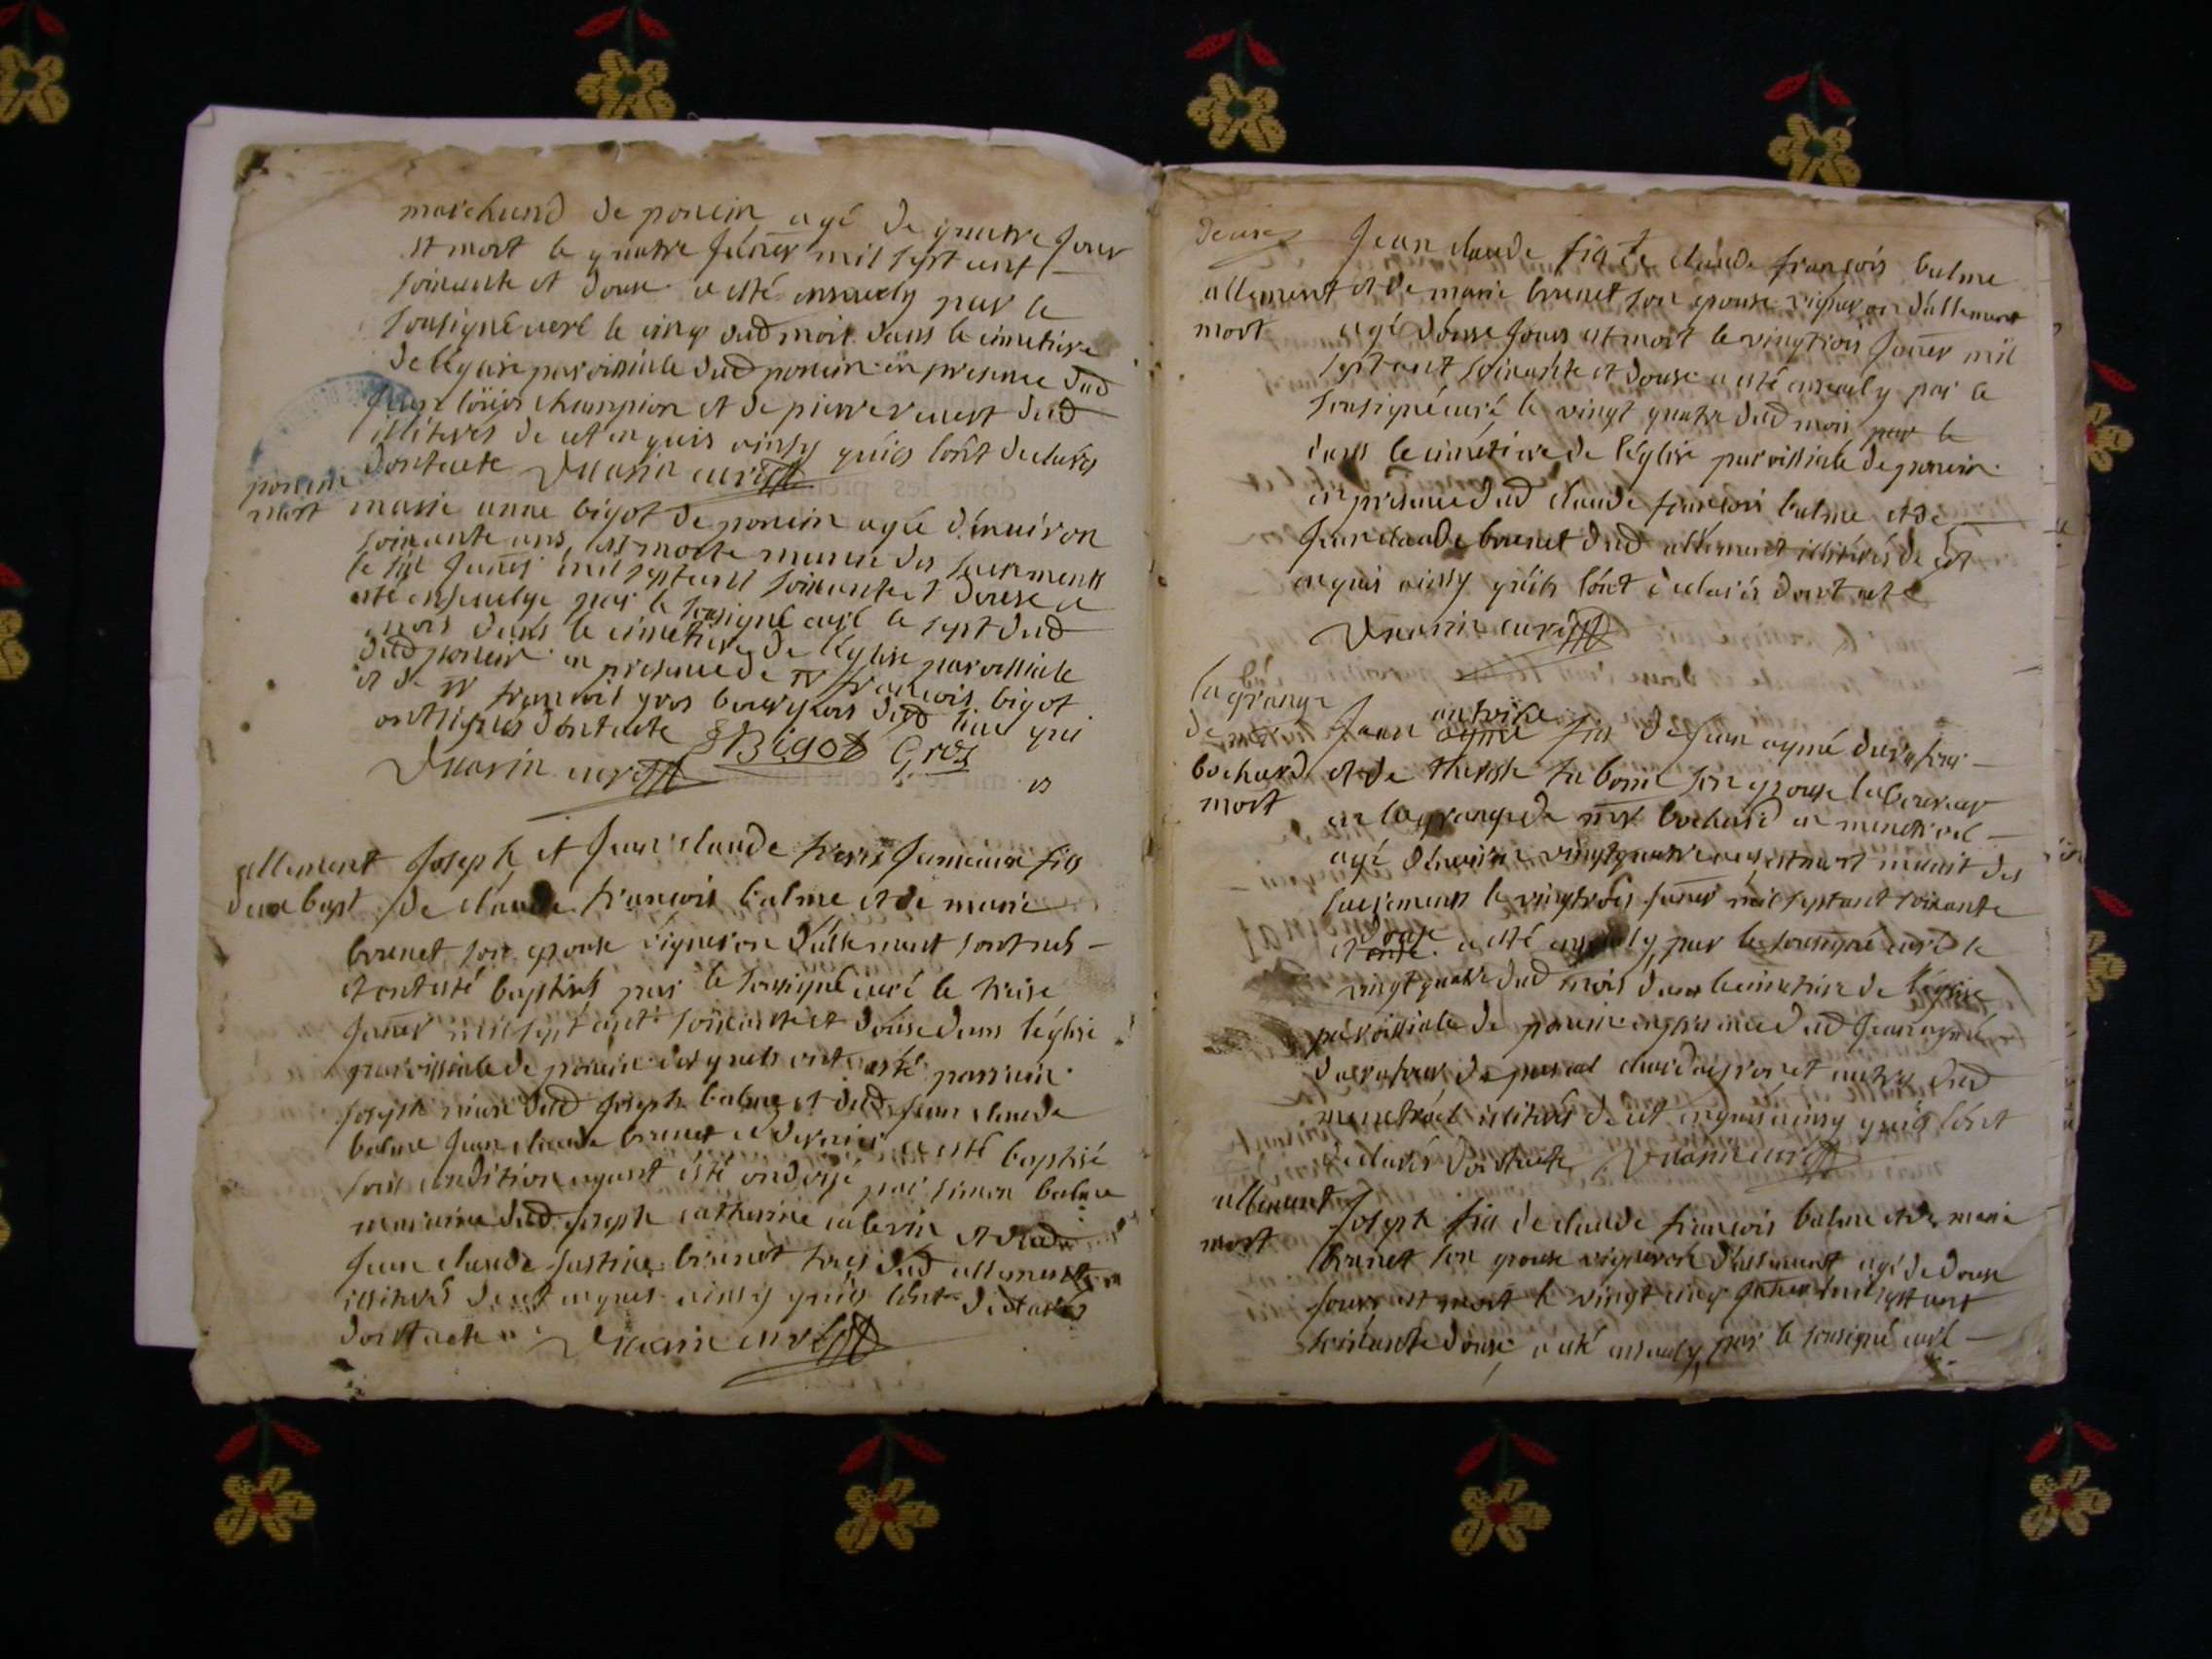 marchand de poncin agé de quatre jour
est mort le quatre janer mil sept cent
soixante et douse a esté ensevely par le
sousigné curé le cinq dud mois dans le cimetiere
de l'église parroissiale dud poncin en presence dud
jean loüis champion et de pierre dud
illiterés de cet enquis ainsy quils lont declarés
dont acte Marin curé
poncin
mort
marie anne bigot de poncin agée d'environ
soixante ans, est morte munie des sacrements
le six janer mil sept cent soixante et douse a
esté ensevelye par le sousigné curé le sept dud
mois dans le cimetiere de l'église parroissiale
dud poncin en presence de sr françois bigot
et de sr françois gros bourgeois dud lieu qui
ont signés dont acte Bigot Gros
Marin curé
allement
deux bapt
joseph et jean claude freres jumeaux fils
de claude françois balme et de marie
brunet son epouse vigneron d'allement sont nés
et ont esté baptisés par le sousigné curé le treise
janer mil sept cent soixante et douse dans l'église
parroissiale de poncin desquels ont esté parrain
joseph dud joseph balme et dud jean claude
balme jean claude brunet ce dernier a esté baptisé
sous condition ayant ésté ondoyé par simon balme
maraine dud joseph catherine et dud
jean claude justine brunet tous dud allement
illiterés de cet enquis ainsy quils lont declarés
dont acte Marin curé
allement
mort
jean claude fils de claude françois balme
et de marie brunet son epouse vigneron d'allement
agé d'onse jours est mort le vingtrois janer mil
sept cent soixante et douse a esté ensevely par le
sousigné curé le vingt quatre dud mois par le
dans le cimetiere de l'église parroissiale de poncin
en presence dud claude françois balme et de
jean claude brunet dud allement illiterés de cet
enquis ainsy quils lont declarés dont acte
Marin curé
la grange
de
bochard
mort
antoine
jean aymé fils de jean aymé
et de therese son epouse laboureur
en la grange de mr bochard en menetruel
agé d'environ vingtquatre ans, est mort munit des
sacrements le vingtrois janer mil sept cent soixante
douse
et onse a esté ensevely par le sousigné curé le
vingt quatre dud mois dans le cimetiere de l'église
parroissiale de poncin en presence dud jean aymé
de
menetruel illiterés de cet enquis ainsy quils lont
declarés dont acte Marin curé
allement
mort
joseph fils de claude françois balme et de marie
brunet son epouse vigneron d'allement agé de douse
jours est mort le vingt cinq janer mil sept cent
soixante douse, a esté ensevely par le sousigné curé